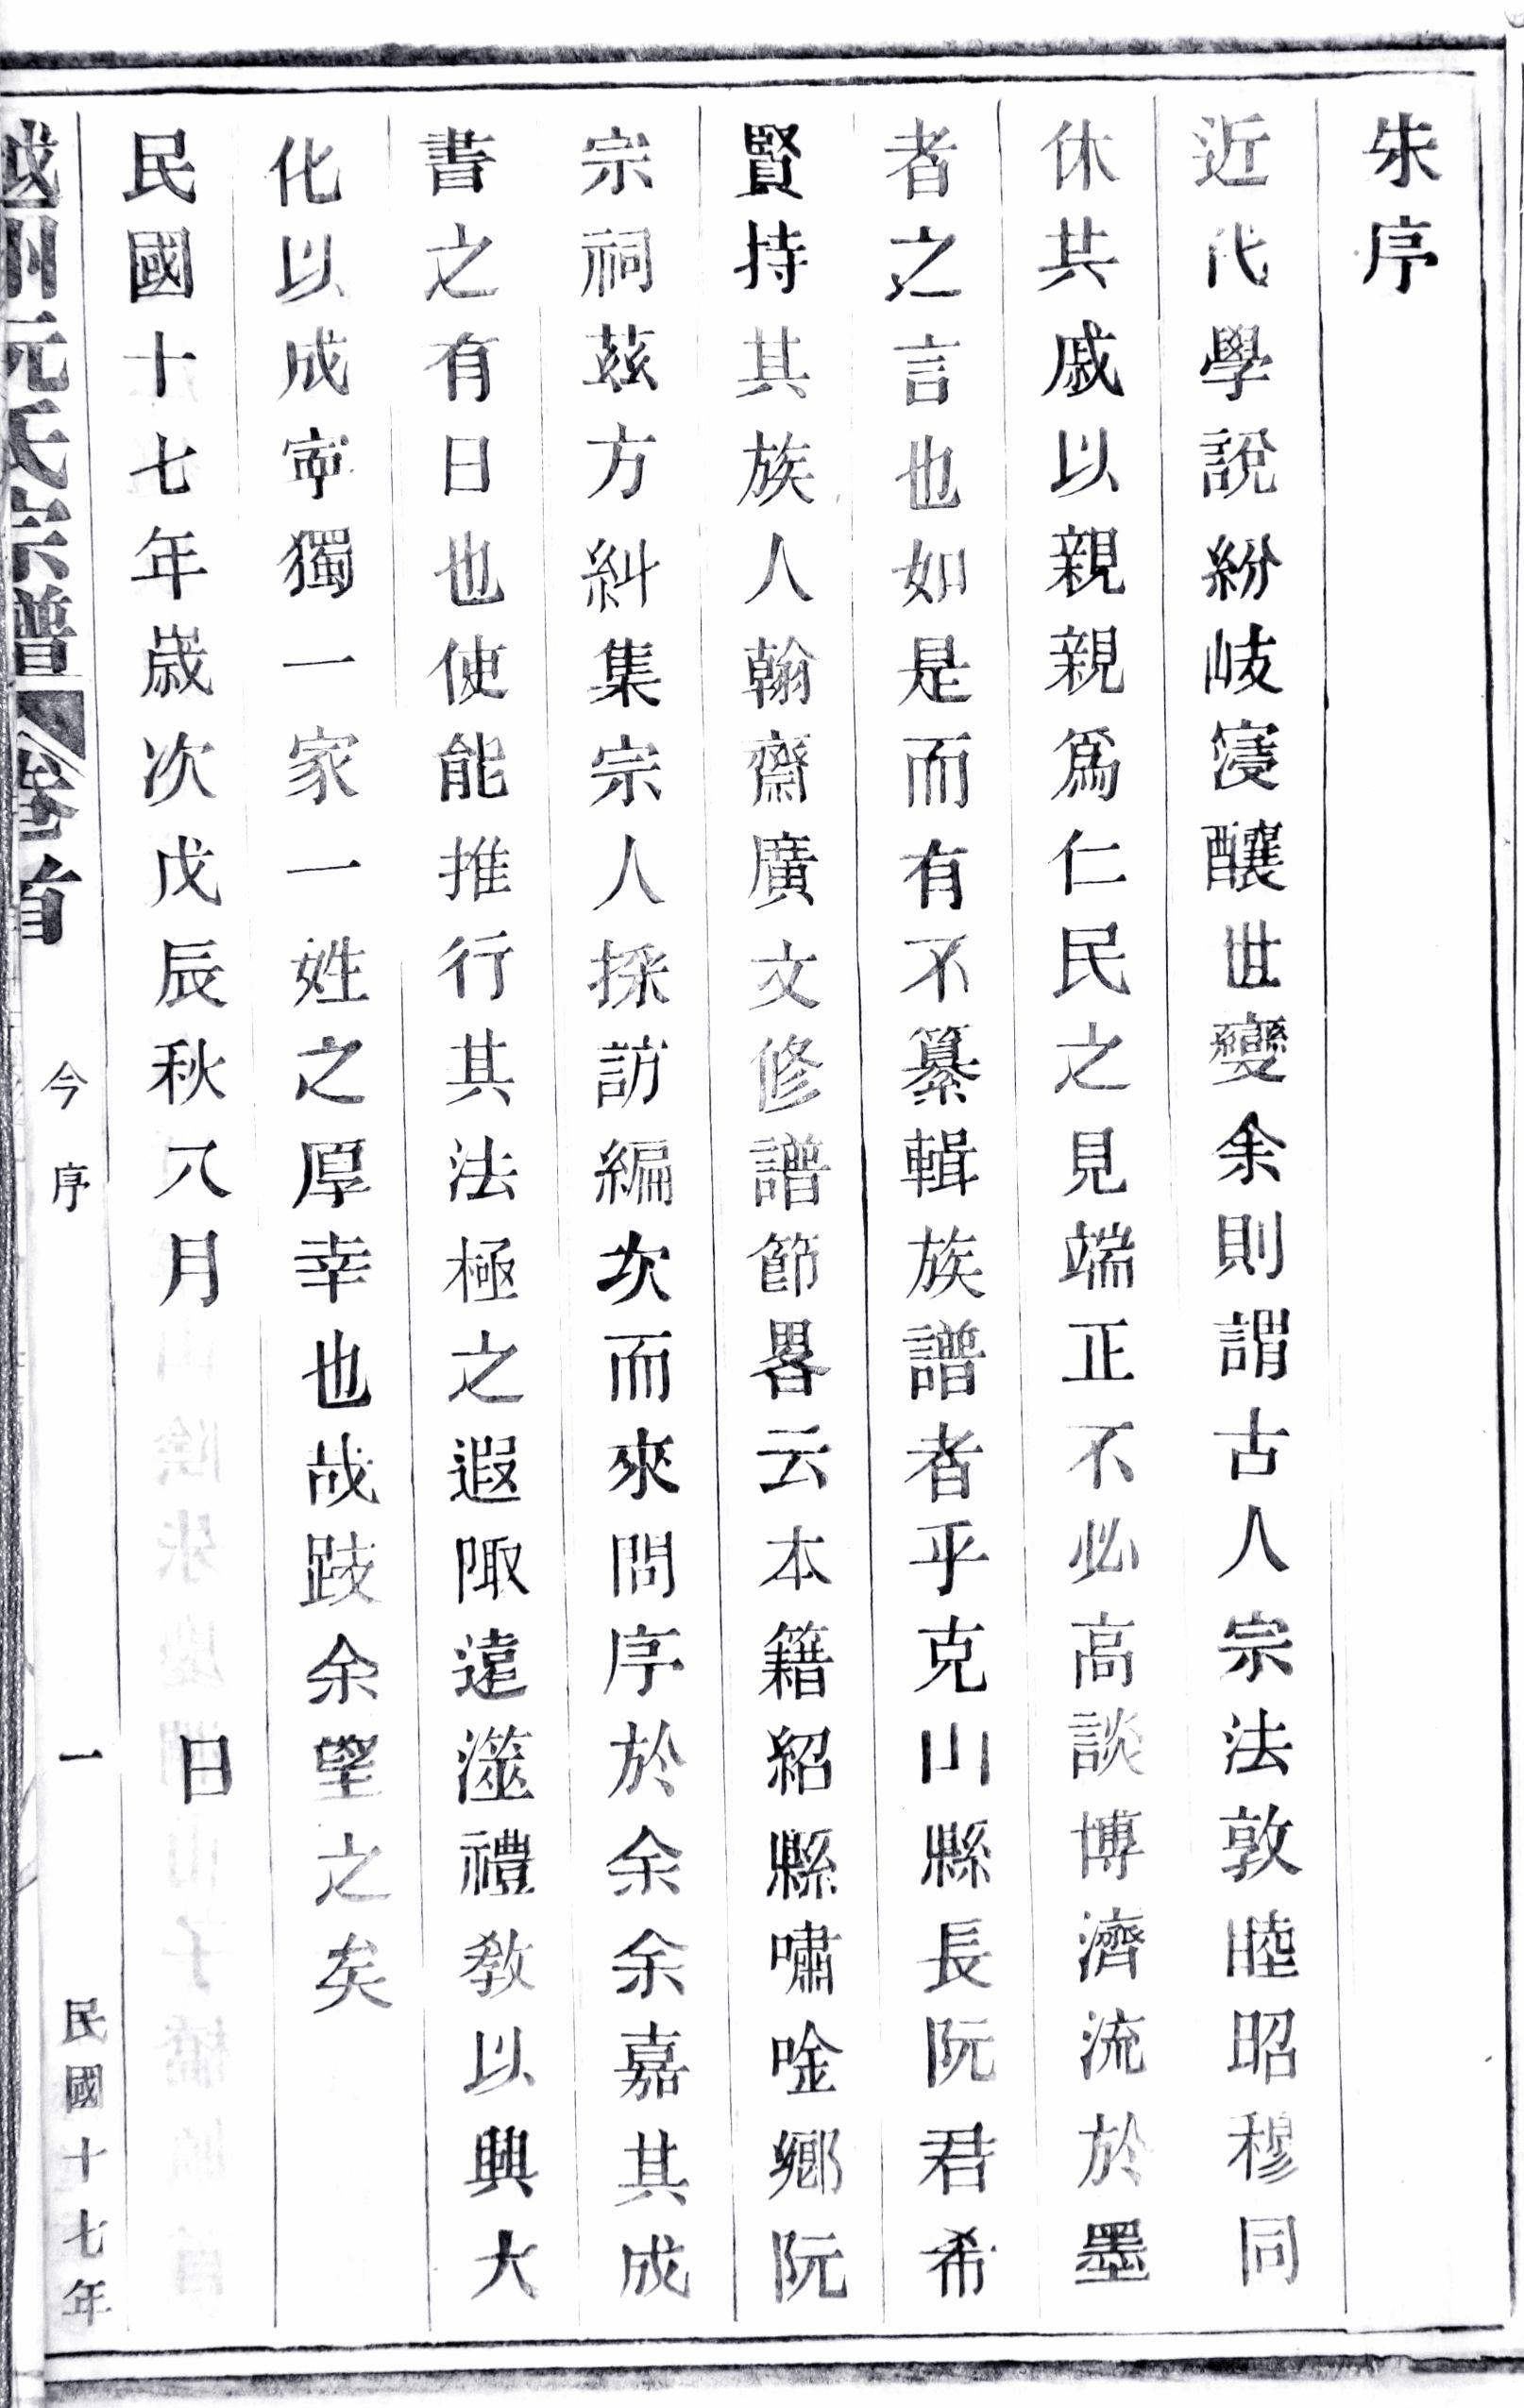 朱序
近代學說紛歧寖釀世變余則謂古人宗法敦睦昭穆同
休共戚以親親爲仁民之見端正不必高談博濟流於墨
者之言也如是而有不纂輯族譜者乎克山縣長阮君希
賢持其族人翰齋廣文修譜節畧云本籍紹縣嘯唫鄉阮
宗祠茲方糾集宗人採訪編次而來問序於余余嘉其成
書之有日也使能推行其法極之遐陬遠澨禮教以興大
化以成寕獨一家一姓之厚幸也哉跂余望之矣
民國十七年歲次戊辰秋八月 日
越州阮氏宗譜 卷首 今序 一 民國十七年